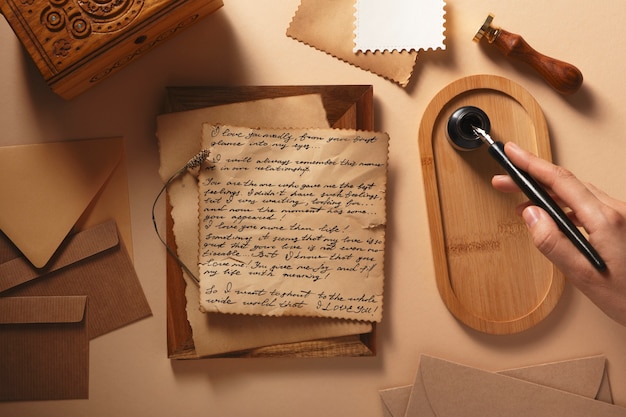 I love you madly, from your first
glance into my eyes...
I will always remember this moment
in our relationship.
You are the one who gave me the best
feelings. I didn't have such feelings
but I was waiting, looking for...
and now the moment has come...
you appeared!
I love you more than life!
Sometimes it seems that my love is so
great that your love is not even no-
ticeable... But I know that you
love me! You give me joy and fill
my life with meaning!
So I want to shout to the whole
wide world that I LOVE YOU!